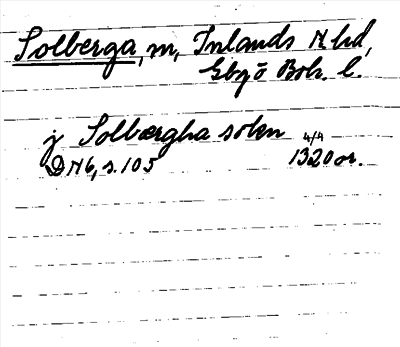 Solberga, m, Inlands N hd,
Gbg o Boh. l.
j Solbærgha soken 4/4
DN 6, s. 105 1320 or.